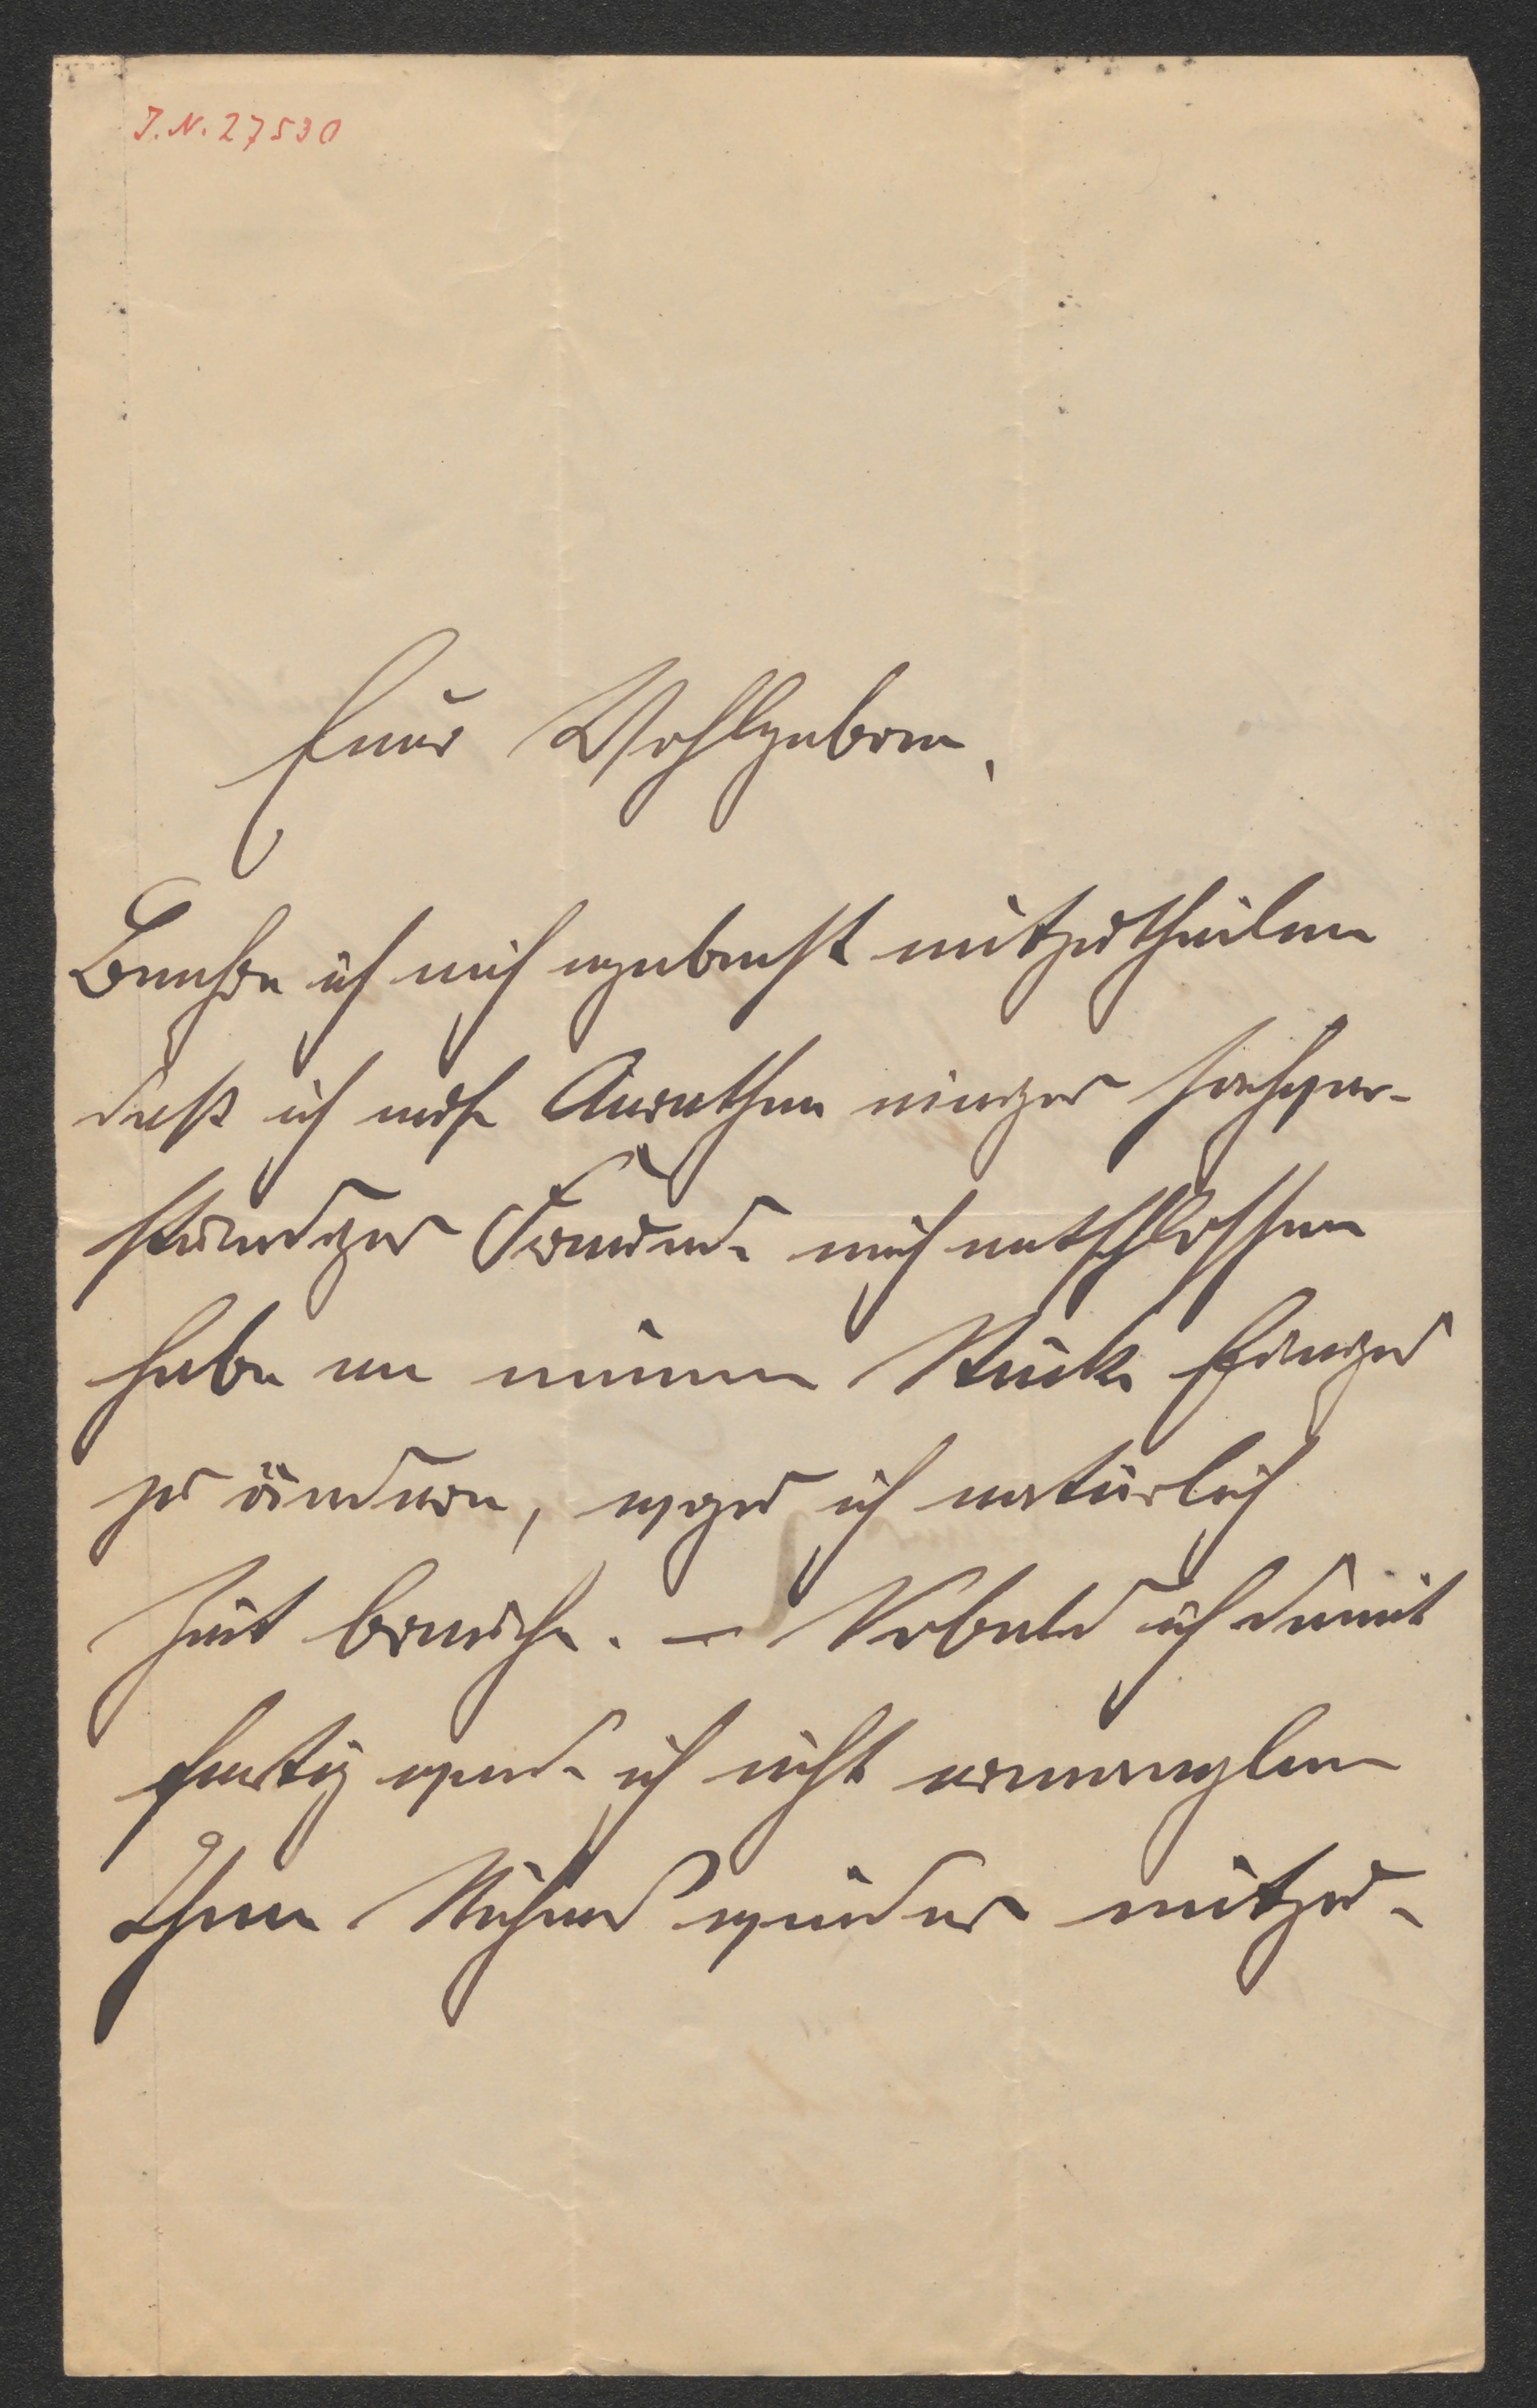 J. N. 27530
Euer Wohlgeboren,
Beehre ich mich ergebenst mitzutheilen
daß ich nach Anrathen einiger sachver-
ständiger Freunde mich entschlossen
habe an meinem Stück Einiges
zu ändern, wozu ich natürlich
Zeit brauche. – Sobald ich damit
fertig werde ich nicht ermanglen
Ihnen wieder mitzu-